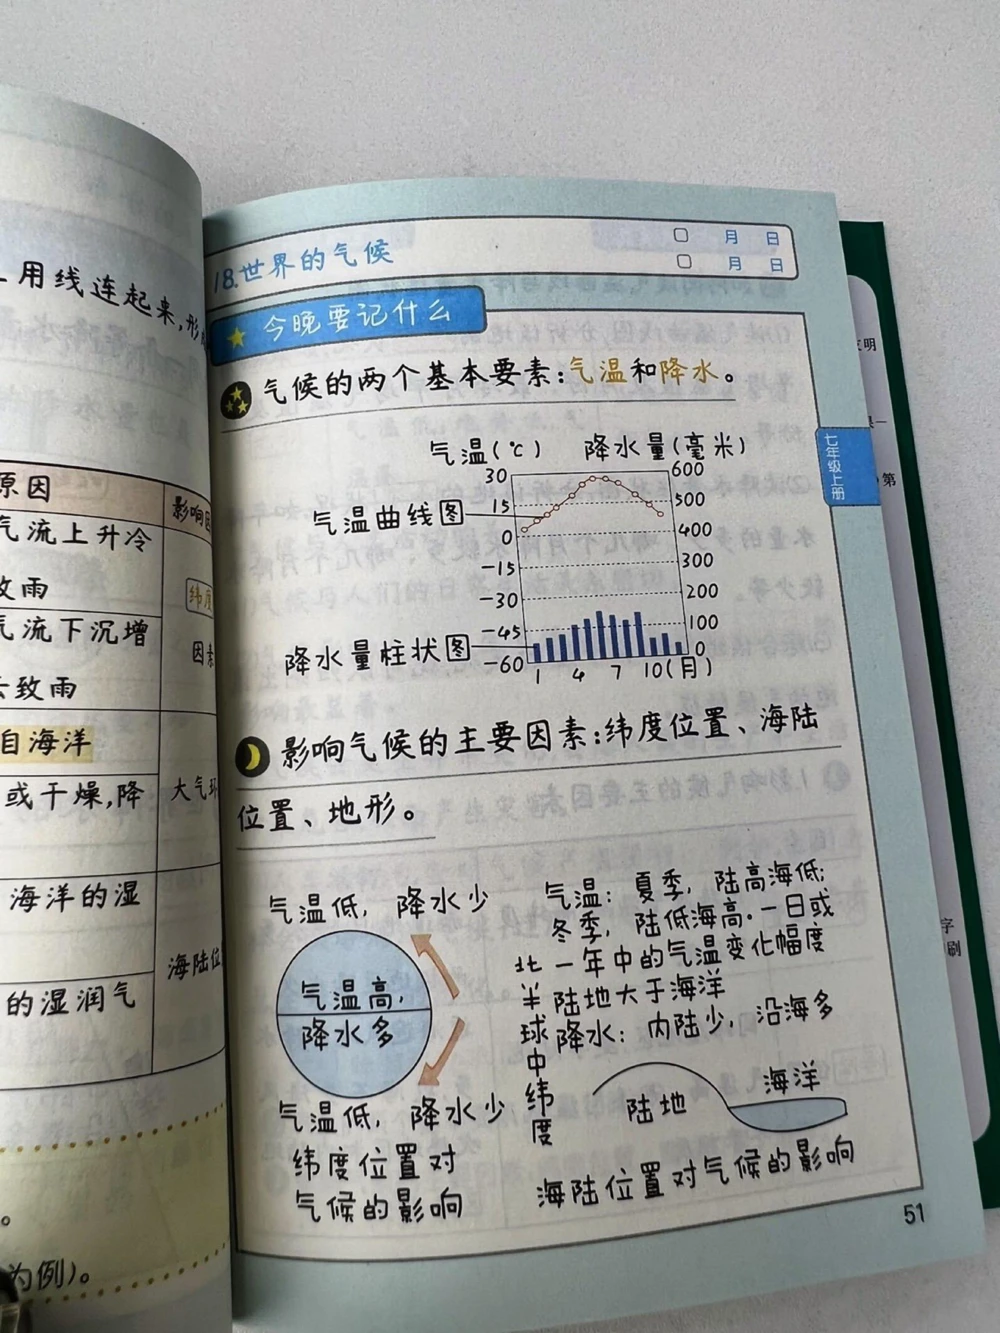 用线连起来,形
原因
影响因
气流上升冷
致雨
纬度
气流下沉增
因素
致雨
自海洋
或干燥,降
大气环
海洋的湿
海陆位
的湿润气
。
为例)。
18.世界的气候
□ 月 日
□ 月 日
今晚要记什么
气候的两个基本要素:气温和降水。
气温(℃) 降水量(毫米)
30 600
15 500
气温曲线图
0 400
-15 300
-30 200
-45 100
降水量柱状图
-60 0
1 4 7 10(月)
影响气候的主要因素:纬度位置、海陆
位置、地形。
气温低,降水少
气温高,
降水多
气温低,降水少
纬度位置对
气候的影响
北半球中纬度
气温:夏季,陆高海低;
冬季,陆低海高.一日或
一年中的气温变化幅度
陆地大于海洋
降水:内陆少,沿海多
海洋
陆地
海陆位置对气候的影响
51
七年级上册
第
字
刷